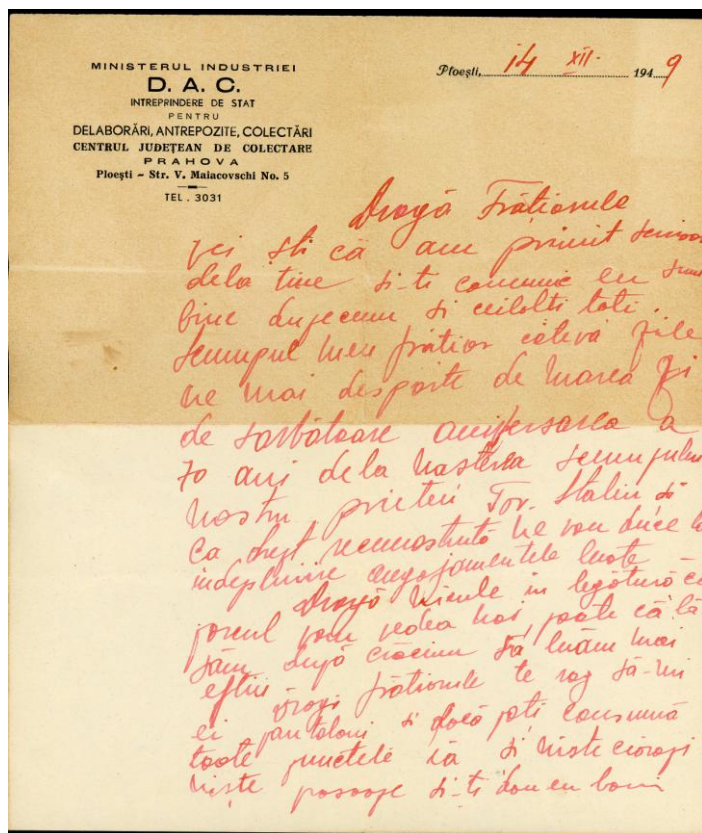 MINISTERUL INDUSTRIEI
D. A. C.
INTREPRINDERE DE STAT
PENTRU
DELABORĂRI, ANTREPOZITE, COLECTĂRI
CENTRUL JUDEȚEAN DE COLECTARE
PRAHOVA
Ploești – Str. V. Maiacovschi No. 5
TEL. 3031
Ploești, 14 XII. 1949
Dragă Frățiorule
vei ști că am primit
dela tine si-ti comunic eu
bine și ceilolti toti.
scumpul meu frătior cîteva zile
ne mai desparte de marea zi
de sarbătoare aniversarea a
70 ani dela nasterea scumpului
nostru prieten Tov. Stalin și
ca drept recunostință ne vom duce la
indeplinire angajamentele luate
Dragă in legătură cu
porcul vom vedea noi, poate că lă
săm după crăciun să luăm mai
eftin Dragi frățiorule te rog să-mi
ei pantaloni și dacă poti consumă
toate punctele ia si niste ciorapi
niște si-ti dau eu bani